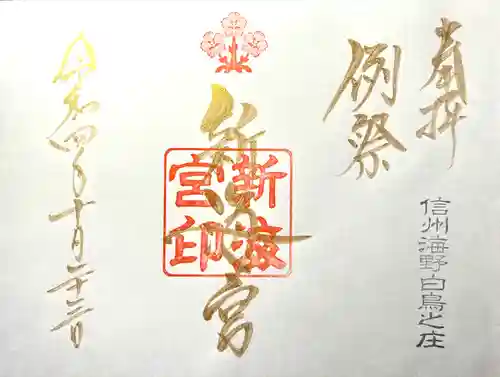 奉拝
信州海野白鳥之庄
例祭
新宮
新
宮印
令和四年十月二十三日